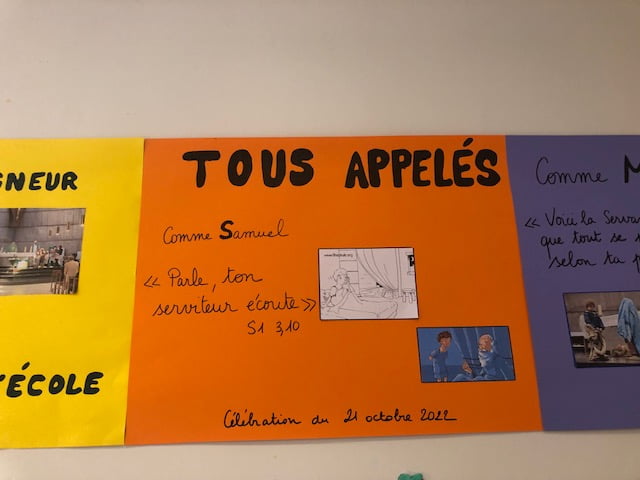 GNEUR
ÉCOLE
TOUS APPELÉS
Comme Samuel
« Parle, ton
serviteur écoute »
S1 3,10
Célébration du 21 octobre 2022
Comme
« Voici la
que tout se
selon ta